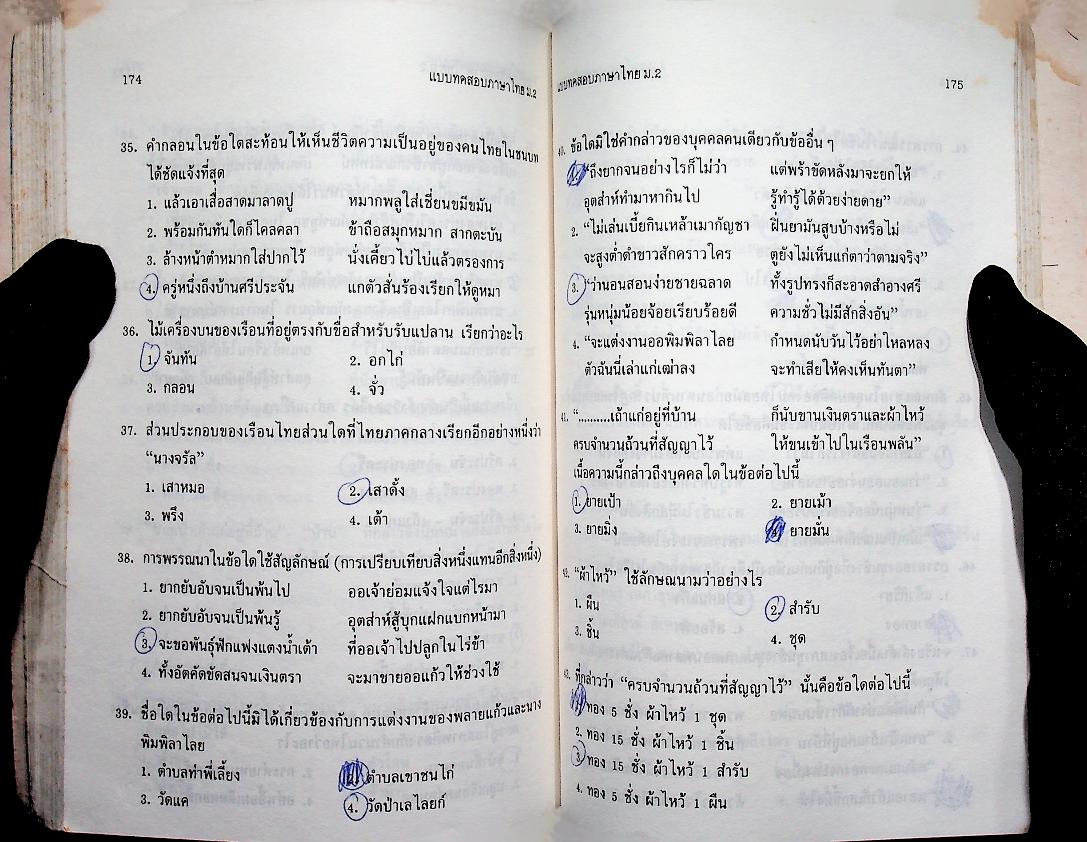 174
แบบทดสอบภาษาไทย ม.2
35. คำกลอนในข้อใดสะท้อนให้เห็นชีวิตความเป็นอยู่ของคนไทยในชนบท
ได้ชัดแจ้งที่สุด
1. แล้วเอาเสื่อสาดมาลาดปู หมากพลูใส่เชี่ยนขมีขมัน
2. พร้อมกันทันใดก็ไคลคลา ข้าถือสมุกหมาก สากตะบัน
3. ล้างหน้าตำหมากใส่ปากไว้ นั่งเคี้ยวไปไบ่แล้วตรองการ
4. ครู่หนึ่งถึงบ้านศรีประจัน แกตัวสั่นร้องเรียกให้ดูหมา
36. ไม้เครื่องบนของเรือนที่อยู่ตรงกับชื่อสำหรับรับแปลาน เรียกว่าอะไร
1. จันทัน 2. อกไก่
3. กลอน 4. จั่ว
37. ส่วนประกอบของเรือนไทยส่วนใดที่ไทยภาคกลางเรียกอีกอย่างหนึ่งว่า
“นางจรัล”
1. เสาหมอ 2. เสาดั้ง
3. พรึง 4. เต้า
38. การพรรณนาในข้อใดใช้สัญลักษณ์ (การเปรียบเทียบสิ่งหนึ่งแทนอีกสิ่งหนึ่ง)
1. ยากยับอับจนเป็นพ้นไป ออเจ้าย่อมแจ้งใจแต่ไรมา
2. ยากยับอับจนเป็นพ้นรู้ อุตส่าห์สู้บุกแฝกแบกหน้ามา
3. จะขอพันธุ์ฟักแฟงแตงน้ำเต้า ที่ออเจ้าไปปลูกในไร่ข้า
4. ทั้งอัตคัดขัดสนจนเงินตรา จะมาขายออแก้วให้ช่วงใช้
39. ชื่อใดในข้อต่อไปนี้มิได้เกี่ยวข้องกับการแต่งงานของพลายแก้วและนาง
พิมพิลาไลย
1. ตำบลท่าพี่เลี้ยง ตำบลเขาชนไก่
3. วัดแค 4. วัดป่าเลไลยก์
แบบทดสอบภาษาไทย ม.2
175
40. ข้อใดมิใช่คำกล่าวของบุคคลคนเดียวกับข้ออื่น ๆ
“ถึงยากจนอย่างไรก็ไม่ว่า แต่พร้าขัดหลังมาจะยกให้
อุตส่าห์ทำมาหากินไป รู้ทำรู้ได้ด้วยง่ายดาย”
2. “ไม่เล่นเบี้ยกินเหล้าเมากัญชา ฝิ่นยามันสูบบ้างหรือไม่
จะสูงต่ำดำขาวสักคราวใคร ตูยังไม่เห็นแก่ตาว่าตามจริง”
3. “ว่านอนสอนง่ายชายฉลาด ทั้งรูปทรงก็สะอาดสำอางศรี
รุ่นหนุ่มน้อยจ้อยเรียบร้อยดี ความชั่วไม่มีสักสิ่งอัน”
4. “จะแต่งงานออพิมพิลาไลย กำหนดนับวันไว้อย่าไหลหลง
ตัวฉันนี่เล่าแก่เฒ่าลง จะทำเสียให้คงเห็นทันตา”
41. “..........เถ้าแก่อยู่ที่บ้าน ก็นับขานเงินตราและผ้าไหว้
ครบจำนวนถ้วนที่สัญญาไว้ ให้ขนเข้าไปในเรือนพลัน”
เนื้อความนี้กล่าวถึงบุคคลใดในข้อต่อไปนี้
1. ยายเป้า 2. ยายเม้า
3. ยายมิ่ง ยายมั่น
42. “ผ้าไหว้” ใช้ลักษณนามว่าอย่างไร
1. ผืน 2. สำรับ
3. ชิ้น 4. ชุด
43. ที่กล่าวว่า “ครบจำนวนถ้วนที่สัญญาไว้” นั้นคือข้อใดต่อไปนี้
ทอง 5 ชั่ง ผ้าไหว้ 1 ชุด
2. ทอง 15 ชั่ง ผ้าไหว้ 1 ชิ้น
3. ทอง 15 ชั่ง ผ้าไหว้ 1 สำรับ
4. ทอง 5 ชั่ง ผ้าไหว้ 1 ผืน